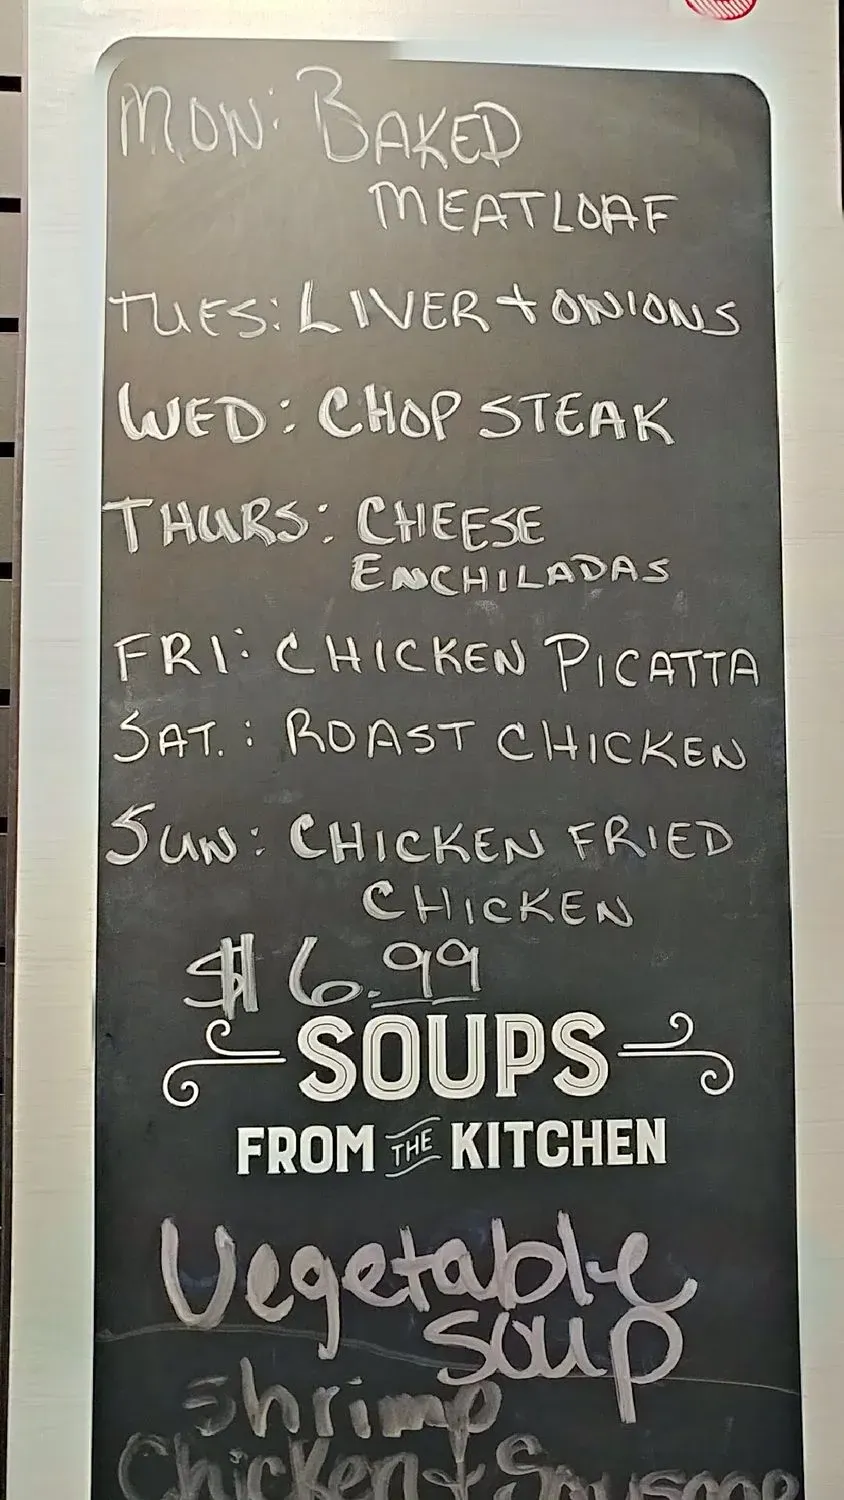 MON: BAKED
MEATLOAF
TUES: LIVER + ONIONS
WED: CHOP STEAK
THURS: CHEESE
ENCHILADAS
FRI: CHICKEN PICATTA
SAT.: ROAST CHICKEN
SUN: CHICKEN FRIED
CHICKEN
$6.99
SOUPS
FROM THE KITCHEN
Vegetable
soup
Shrimp
Chicken + Sausage